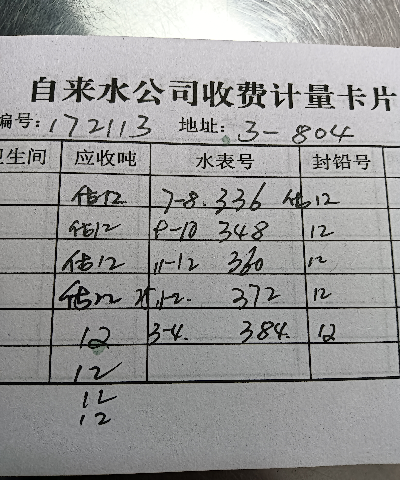 自来水公司收费计量卡片
编号: 172113 地址: 3-804
卫生间 应收吨 水表号 封铅号
估12 7-8. 336 估12
估12 9-10 348 12
估12 11-12 360 12
估12 1-2. 372 12
12 3-4. 384. 12
12
12
12